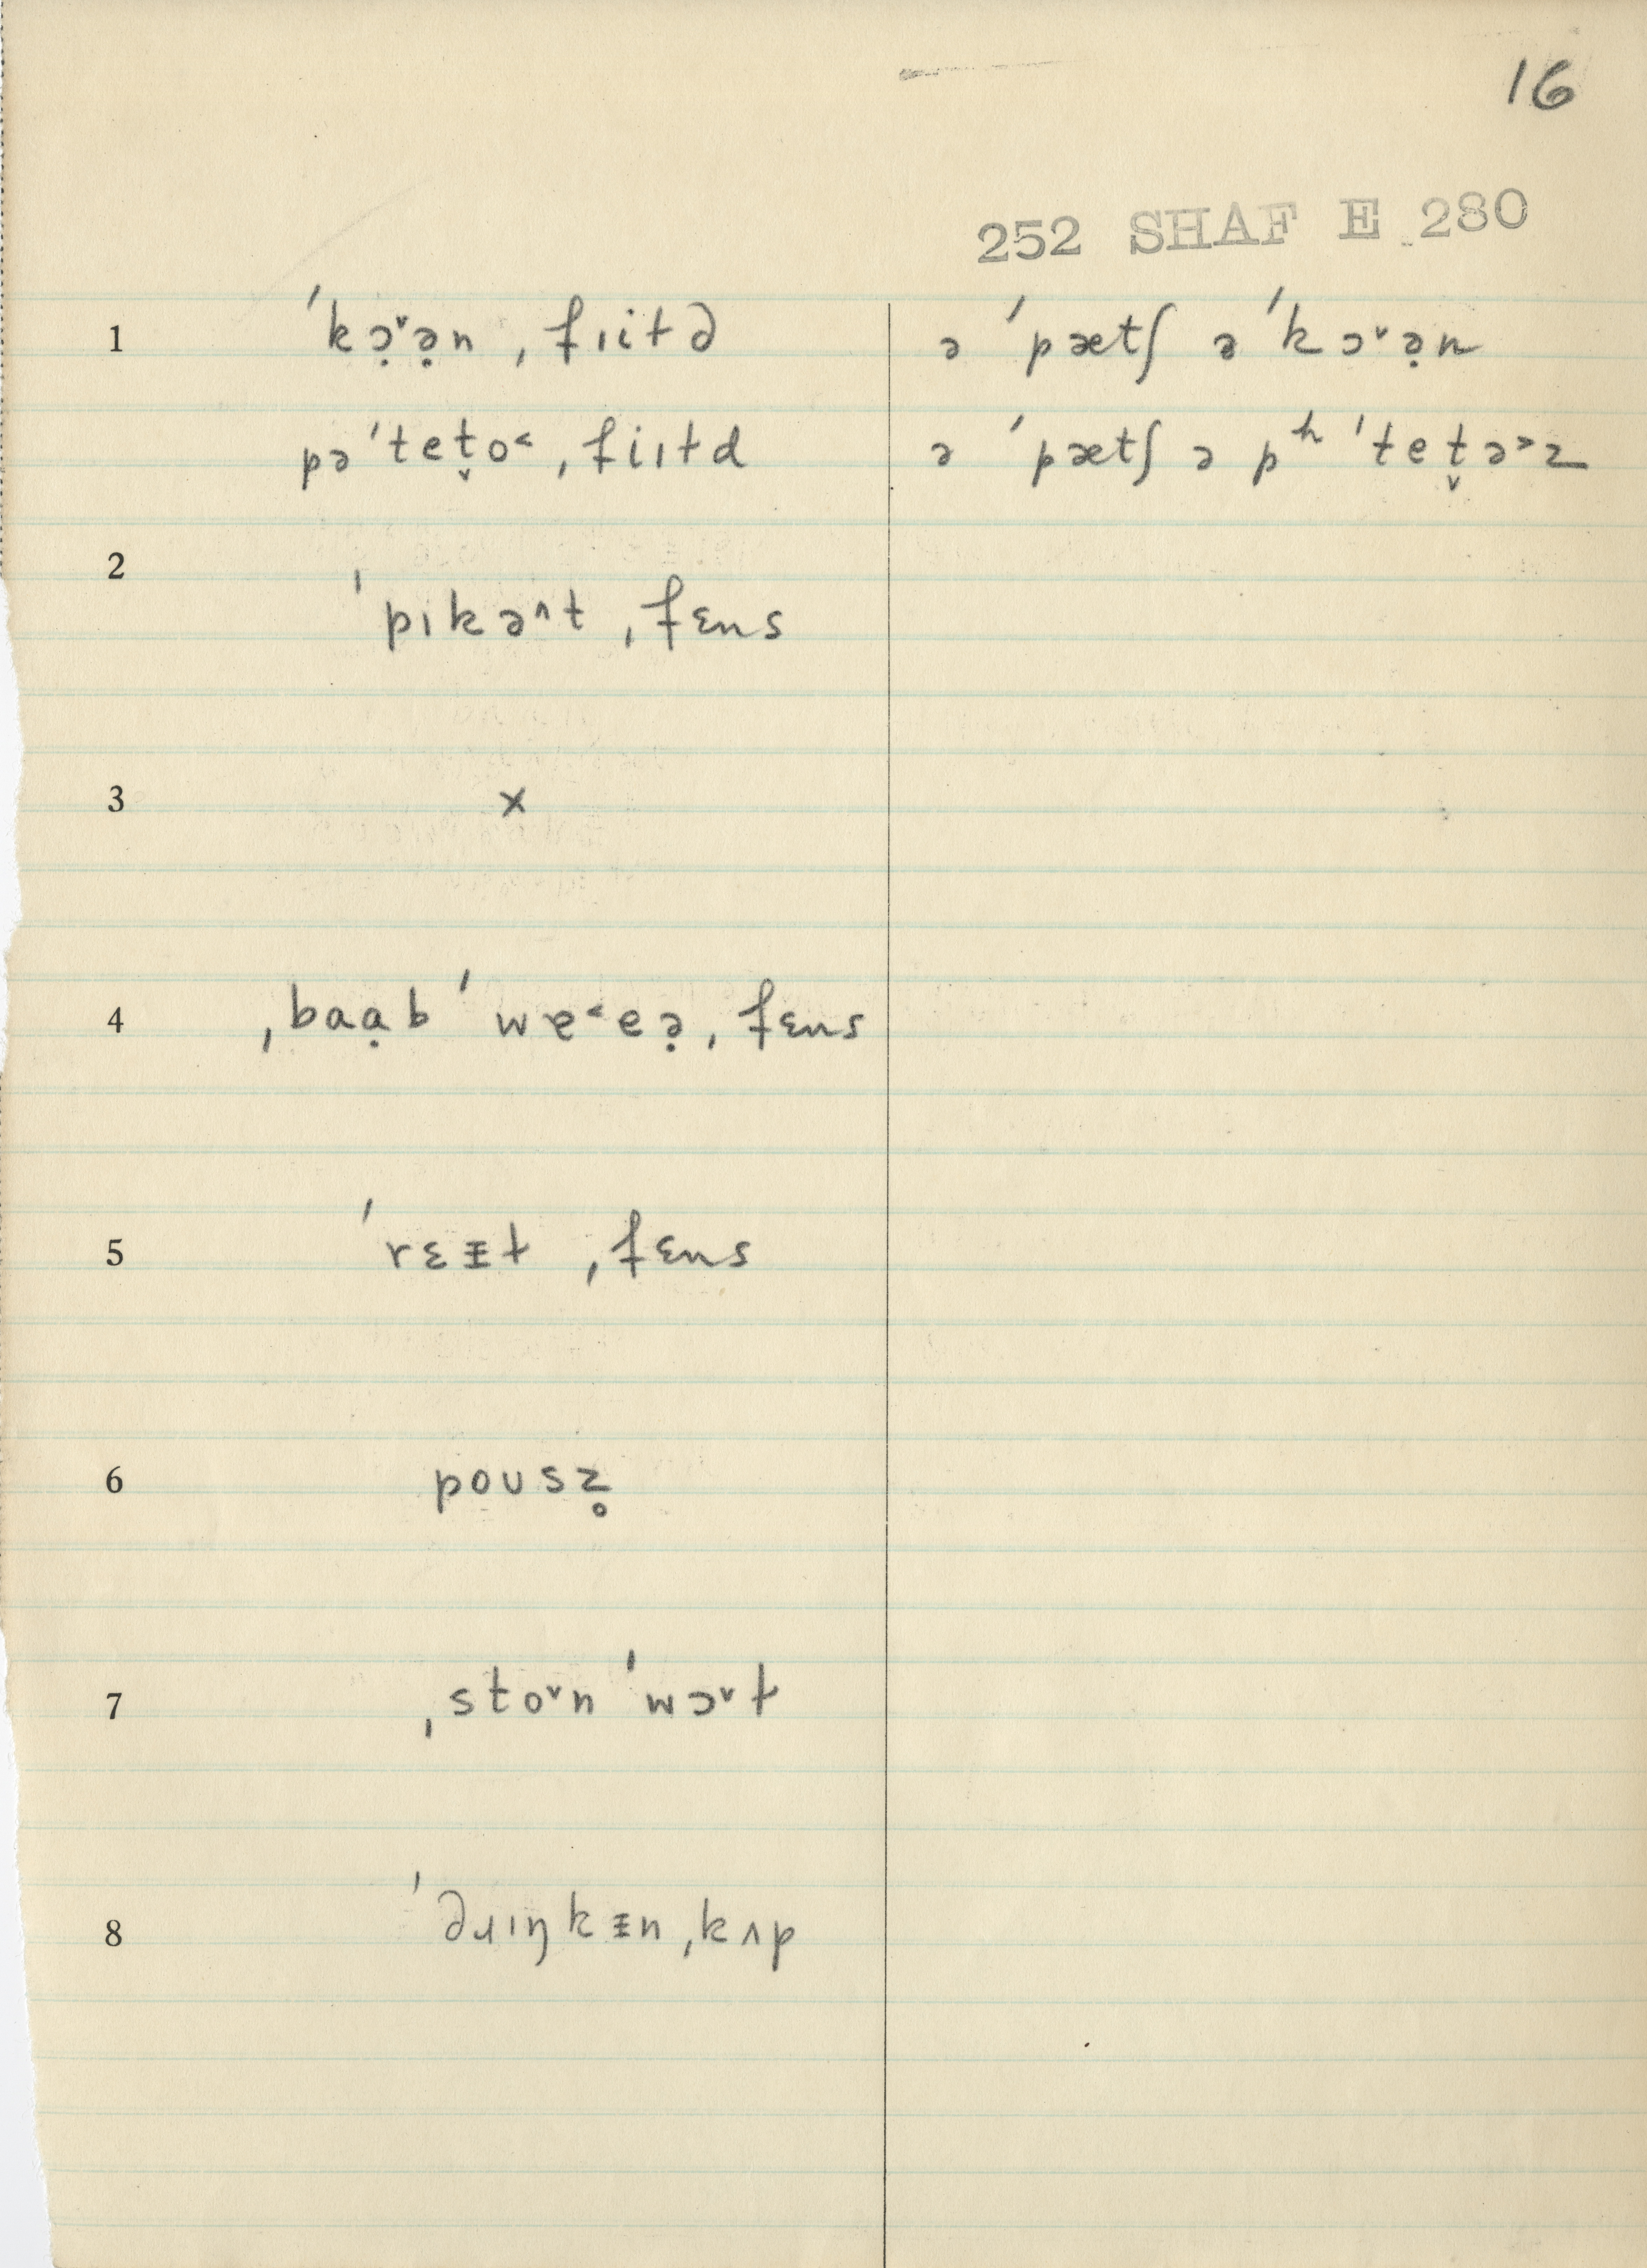 16
252 SHAF E 280
1 ˈkɔ̣ˇə̣n ˌfɪitd ə ˈpætʃ ə ˈkɔˇə̣n
pəˈtet̬o˂ ˌfiɪtd ə ˈpætʃ ə pʰˈtet̬ə˃z
2 ˈpɪkə^t ˌfɛns
3 x
4 ˌbaɑ̣b ˈwɐ˂ɐə̣ ˌfɛns
5 ˈrɛᵻt ˌfɛns
6 poʊsz̥
7 ˌstoˇn ˈwɔˇɫ
8 ˈdɹɪŋkᵻn ˌkʌp